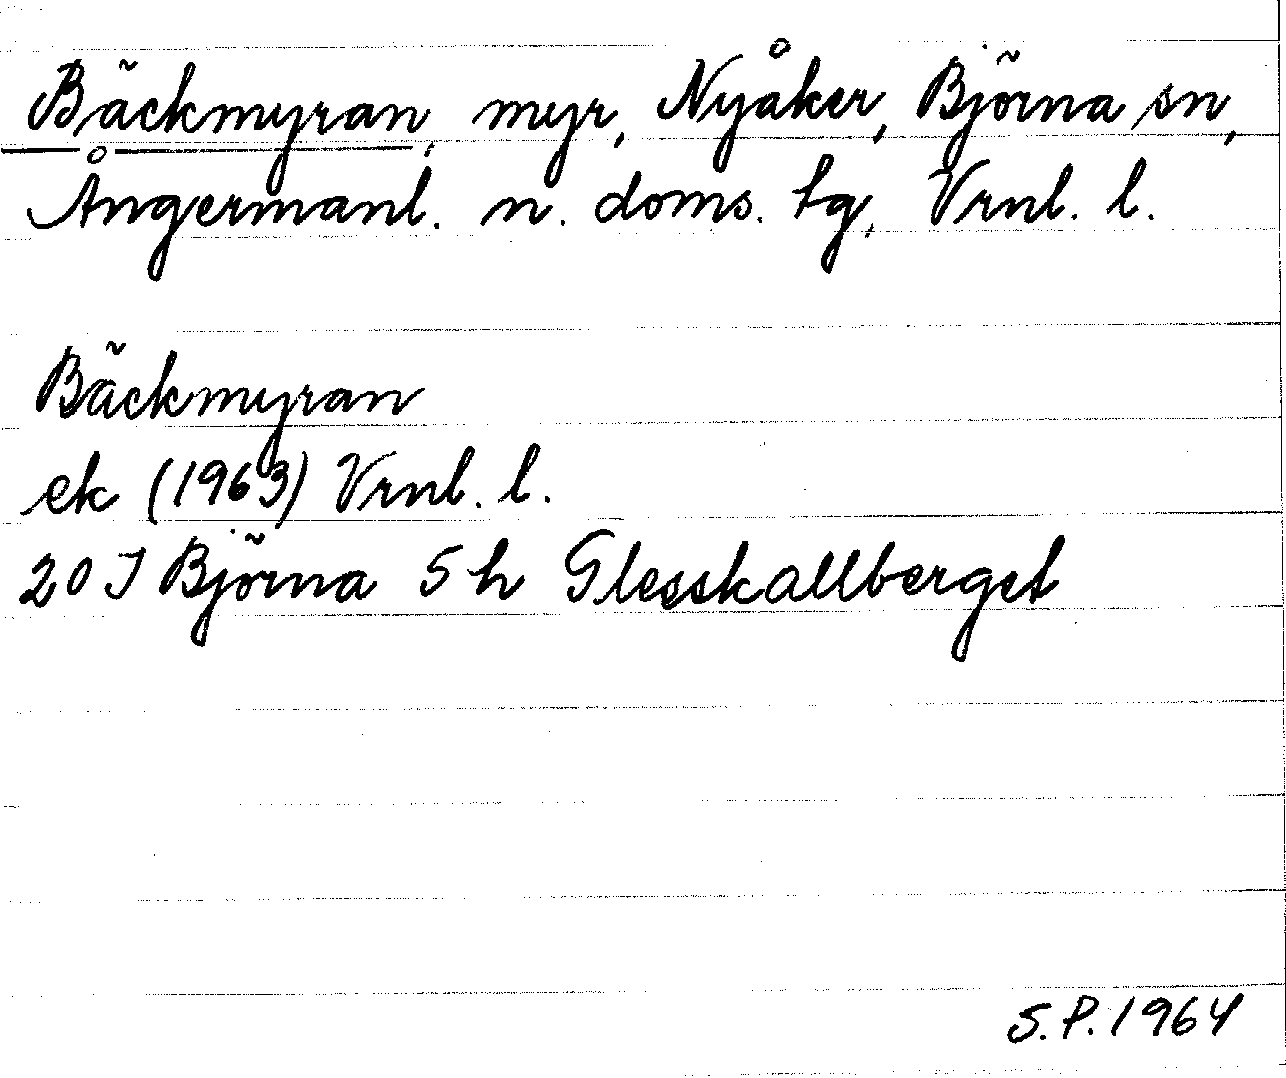 Bäckmyran, myr, Nyåker, Björna sn,
Ångermanl. n. doms. tg, Vrnl. l.
Bäckmyran
ek (1963) Vrnl. l.
20 J Björna 5 h Glesskallberget
S.P. 1964